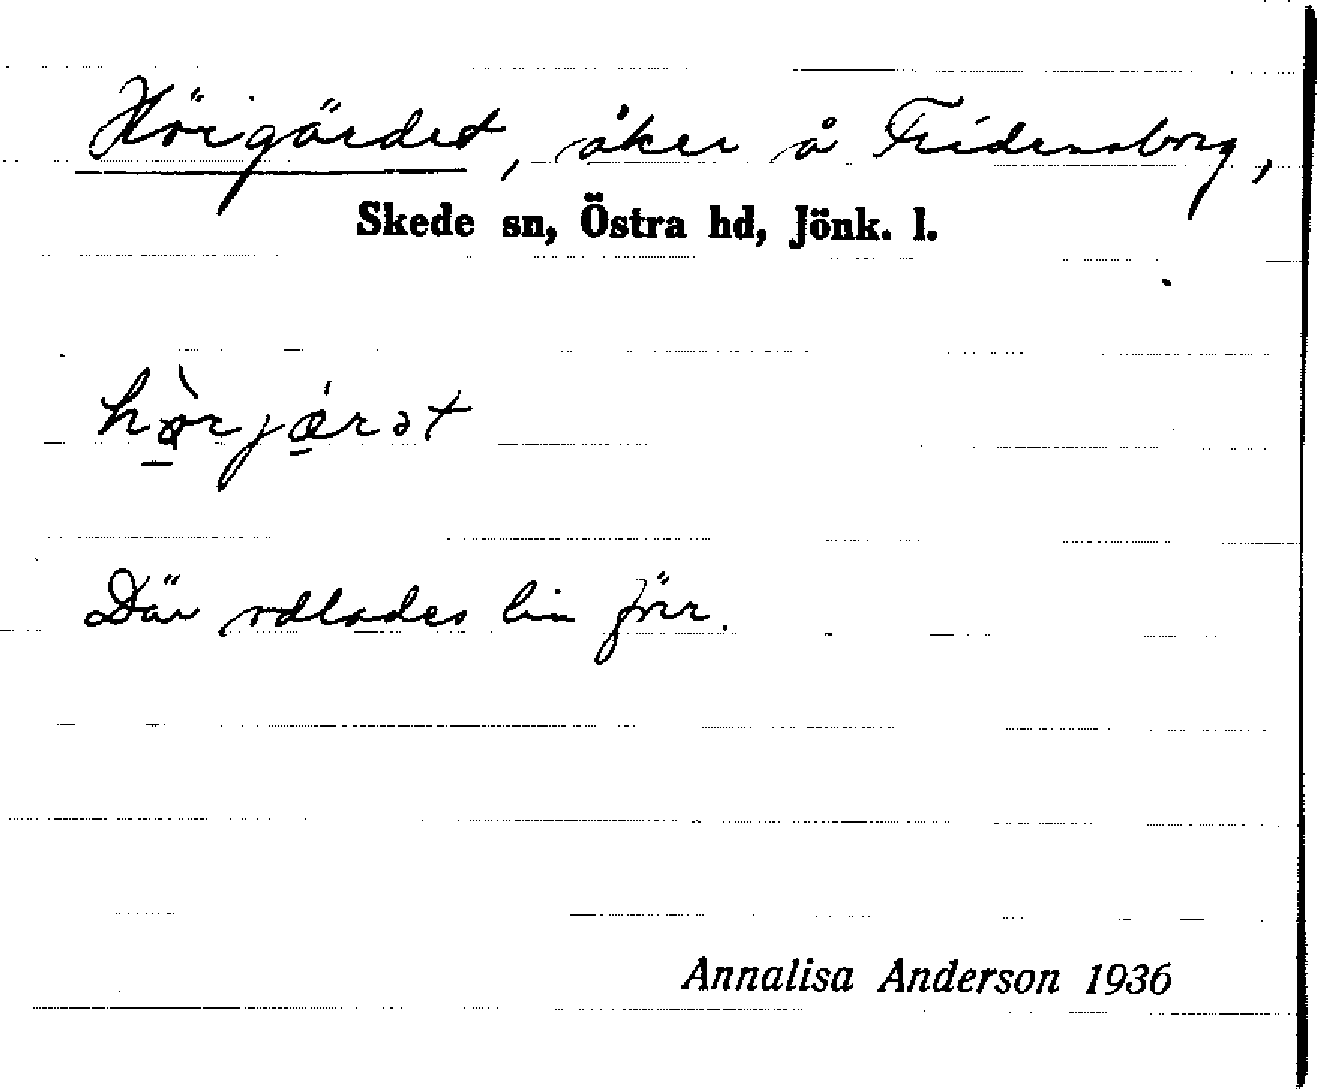 Hörgärdet, åker å Fridensborg,
Skede sn, Östra hd, Jönk. l.
Där odlades lin förr.
Annalisa Anderson 1936